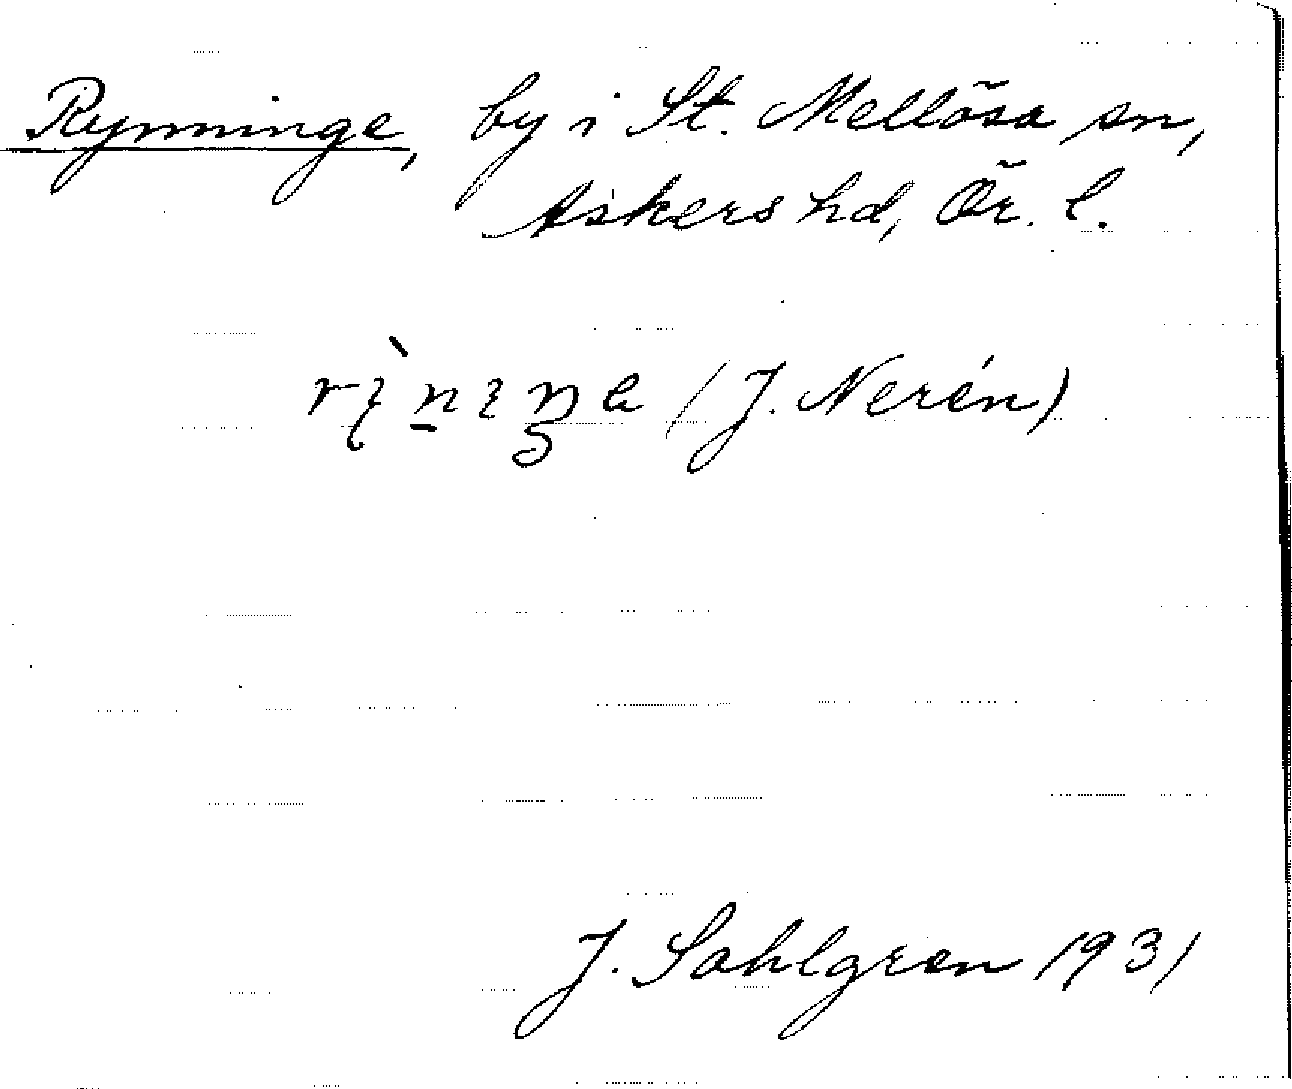 Rynninge, by i St. Mellösa sn,
Askers hd, Ör. l.
(J. Nerén)
J. Sahlgren 1931